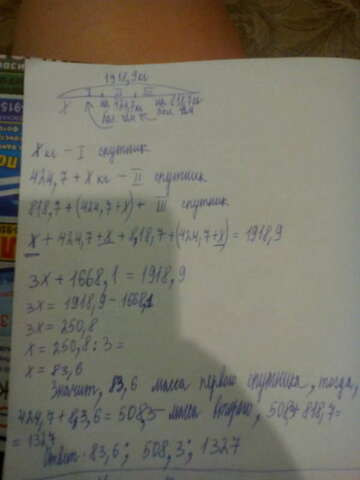 1918,9 кг
I II III
на 424,7 кг на 818,7 кг
X бол. чем бол. чем
X кг – I спутник
424,7 + X кг – II спутник
818,7 + (424,7 + X) + III спутник
X + 424,7 + X + 818,7 + (424,7 + X) = 1918,9
3X + 1668,1 = 1918,9
3X = 1918,9 – 1668,1
3X = 250,8
X = 250,8 : 3 =
X = 83,6
Значит, 83,6 масса первого спутника, тогда,
424,7 + 83,6 = 508,3 масса второго, 508,3 + 818,7 =
= 1327
Ответ: 83,6; 508,3; 1327